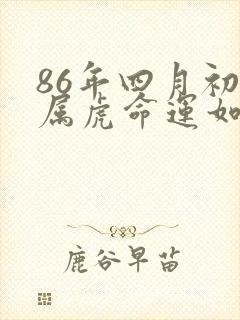 86年四月初
属虎命运如
鹿谷早苗